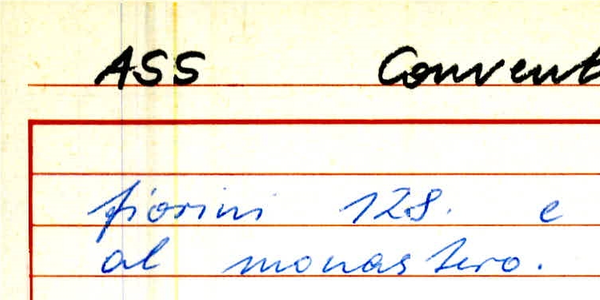 ASS Convent
fiorini 128. e
al monastero.